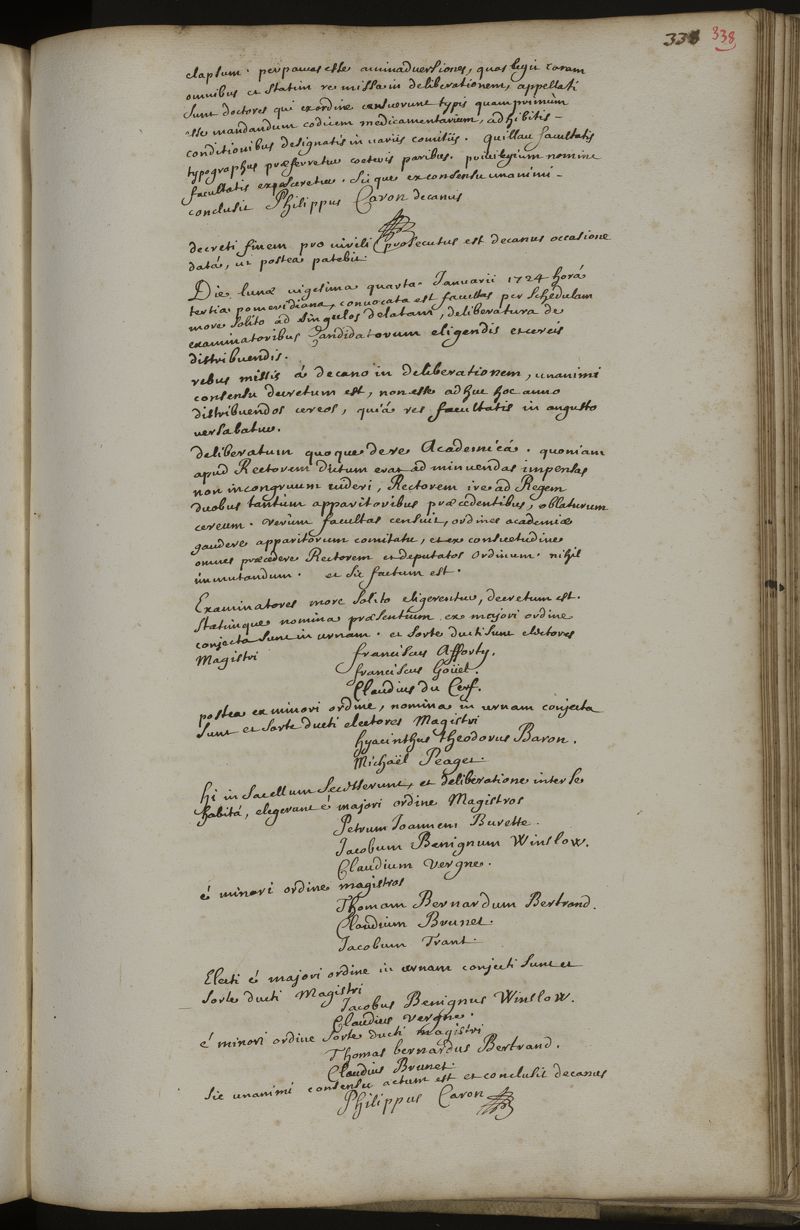 338 338
elapsum. perpaucas esse animadversiones, quas legit coram
omnibus et statim re missa in deliberationem, appellati
sunt doctores qui ex ordine censuerunt typis quamprimùm
esse mandandum codicem medicamentarium, adhibitis
conditionibus designatis in variis comitiis. Quillau facultatis
typographus præferretur coeteris paribus. privilegium nomine
facultatis exposceretur. Sicque ex consensu unanimi
conclusit Philippus Caron decanus
decreti finem pro virili prosecutus est decanus occasione
datâ, ut postea patebit.
Die lunæ vigesima quarta Januarii 1724 horâ
tertia pomeridiana, convocata est facultas per Schedulam
more solito ad singulos delatam, deliberatura de
examinatoribus Candidatorum eligendis et cereis
distribuendis.
rebus missis à decano in deliberationem, unanimi
consensu decretum est, non esse adhuc hoc anno
distribuendos cereos, quià res facultatis in angusto
versabatur.
deliberatum quoque de re Academicâ. quoniam
apud Rectorem dictum erat ad minuendas impensas
non incongruum videri, Rectorem ire ad Regem
duobus tantùm apparitoribus præcedentibus, oblaturum
cereum. verùm facultas censuit, ordines academiæ
gaudere apparitorum comitatu, et ex consuetudine
omnes præcedere Rectorem et deputatos ordinum. nihil
immutandum. et sic factum est.
Examinatores more solito eligerentur, decretum est.
statimque nomina præsentium ex majori ordine
conjecta sunt in urnam. et sorte ducti sunt electores
Magistri
franciscus Afforty.
franciscus Goüet.
Claudius du Cerf.
postea ex minori ordine, nomina in urnam conjecta
sunt et sorte ducti electores Magistri
hyacinthus theodorus Baron.
Michaël Peaget.
hi in sacellum secesserunt, et deliberatione inter se
habitâ, elegerunt è majori ordine Magistros
Petrum Joannem Burette.
Jacobum Benignum Winslow.
Claudium vergne.
è minori ordine magistros
Thomam Bernardum Bertrand.
Claudium Brunet.
Jacobum Trant.
Electi è majori ordine in urnam conjecti sunt et
sorte ducti Magistri
Jacobus Benignus Winslow.
Claudius vergne.
è minori ordine sorte ducti magistri
Thomas bernardus Bertrand.
Claudius Brunet.
Sic unanimi consensu actum est et conclusit decanus
Philippus Caron